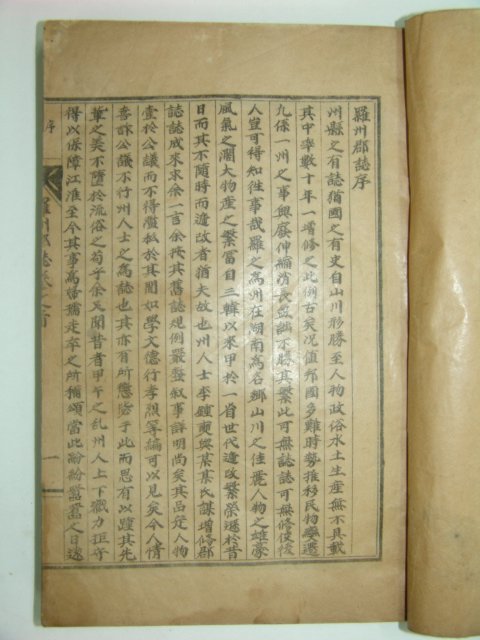 羅州郡誌序
州縣之有誌猶國之有史自山川形勝至人物政俗水土生産無不具載
其中率數十年一增修之此例古矣况値邦國多難時勢推移民物變遷
凡係一州之事與廢伸縮消長益繭不勝其繁此可無誌誌可無修使後
人豈可得知往事哉羅之爲州在湖南爲名鄕山川之佳麗人物之雄豪
風氣之濶大物産之繁富自三韓以來甲於一省世代遞改繁榮遜於昔
日而其不隨時而遞改者猶夫故也州人士李鍾奭與某某氏謀增修郡
誌誌成來求余一言余按其舊誌規例嚴整叙事詳明尙矣其品定人物
壹於公議而不得濫私於其間如學文德行孝烈等編可以見矣今人情
喜訴公議不行州人士之爲誌也其亦有所懲毖于此而思有以踵其先
輩之美不墮於流俗之苟乎余又聞昔者甲午之乱州人上下戮力拒守
得以保障江淮至今其事爲婦孺走卒之所稱頌當此紛紛鬱鬱之日遠
序
羅州郡誌卷之首
一